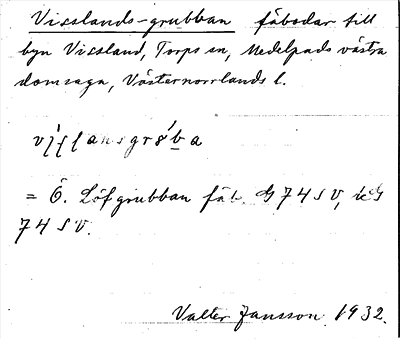 Visslands-grubban fäbodar till
byn Vissland, Torps sn, Medelpads västra
domsaga, Västernorrlands l.
= Ö. Löfgrubban fäb. G 74 SV, icG
74 SV.
Valter Jansson 1932.